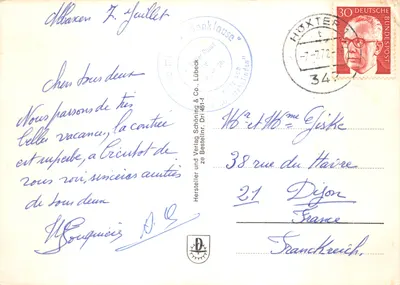 Albaxen 7. Juillet
Chers tous deux
Nous passons de très
belles vacances, la contrée
est superbe, à bientôt de
vous voir, sincères amitiés
de tous deux
Hersteller und Verlag Schöning & Co., Lübeck
HÖXTER 1
347
30
DEUTSCHE
BUNDESPOST
Mr et Mme
38 rue du Havre
21 Dijon
France
Franckreich.